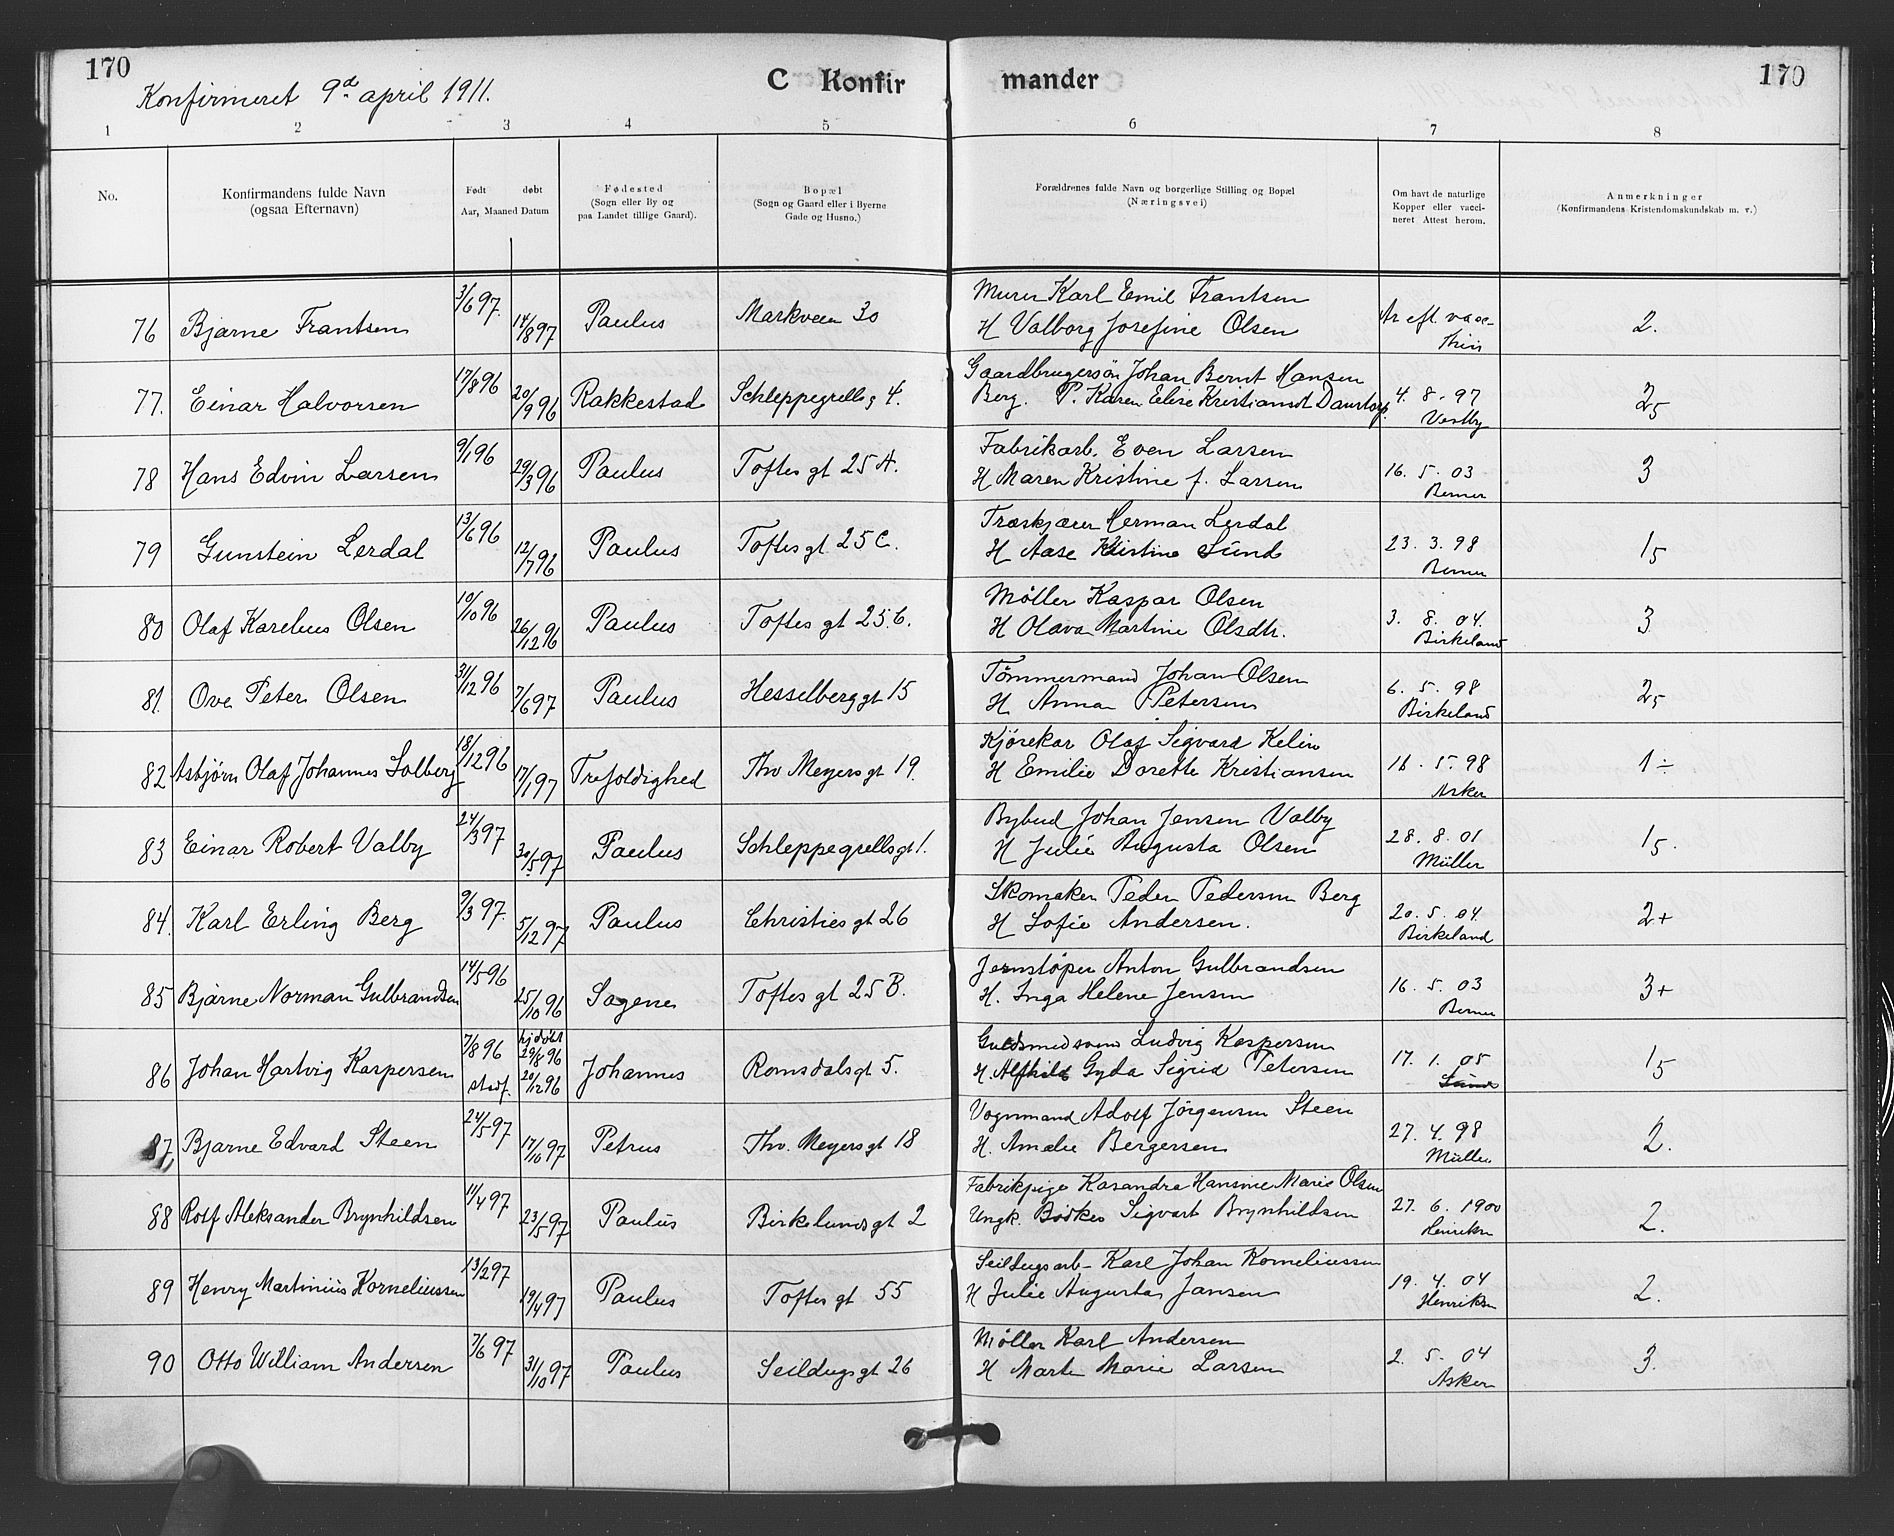 170
Konfirmeret 9d april 1911.
C Konfirmander
170
1 2 3 4 5 6 7 8
No.
Konfirmandens fulde Navn
(ogsaa Efternavn)
Født døbt
Aar, Maaned Datum
Fødested
(Sogn eller By og
paa Landet tillige Gaard).
Bopæl
(Sogn og Gaard eller i Byerne
Gade og Husno.)
Forældrenes fulde Navn og borgerlige Stilling og Bopæl
(Næringsvei)
Om havt de naturlige
Kopper eller vacci-
neret Attest herom.
Anmerkninger
(Konfirmandens Kristendomskundskab m. v.)
76 Bjarne Frantsen 3/6 97. 14/8 97 Paulus Markveien 30
Murer Karl Emil Frantsen
H Valborg Josefine Olsen
2.
77. Einar Halvorsen 17/8 96 20/9 96 Rakkestad Schleppegrellsg 4.
Gaardbrugersøn Johan Bernt Hansen
Berg. P. Karen Elise Kristiansdt
4. 8. 97
Vestby
25
78 Hans Edvin Larsen 9/1 96 29/3 96 Paulus Toftes gt 25 A.
Fabrikarb. Even Larsen
H Maren Kristine f. Larsen
16. 5. 03
Berner
3
79 Gunstein Lerdal 13/6 96 12/7 96 Paulus Toftes gt 25 C.
Træskjærer Herman Lerdal
H Aase Kristine Sund
23. 3. 98
Berner
15
80 Olaf Karelius Olsen 10/10 96 26/12 96 Paulus Toftes gt 25.C.
Møller Kaspar Olsen
H Olava Martine Olsdtr.
3. 8. 04.
Birkeland
3
81. Ove Peter Olsen 31/12 96 7/6 97 Paulus Hesselberg gt 15
Tømmermand Johan Olsen
H Anna Petersen
6. 5. 98
Birkeland
25
82 Asbjørn Olaf Johannes Solberg 18/12 96 17/1 97 Trefoldighed Thv Meyers gt 19.
Kjørekar Olaf Sigvard Kelin
H Emilie Dorette Kristiansen
16. 5. 98
Asker
1÷
83 Einar Robert Valby 24/3 97 30/5 97 Paulus Schleppegrells gt 1.
Bybud Johan Jensen Valby
H Julie Augusta Olsen
28. 8. 01
Müller
15.
84. Karl Erling Berg 9/3 97. 5/12 97 Paulus Christies gt 26
Skomaker Peder Pedersen Berg
H Sofie Andersen.
20. 5. 04.
Birkeland
2+
85 Bjarne Norman Gulbrandsen 14/5 96 25/10 96 Sagene Toftes gt 25 B.
Jernstøper Anton Gulbrandsen
H. Inga Helene Jensen
16. 5. 03
Berner
3+
86 Johan Hartvig Kaspersen 7/8 96 hjdøbt 29/8 96
stadf. 20/12 96 Johannes Romsdalsgt 5.
Guldsmedsvend Ludvig Kaspersen
H. Alfhild Gyda Sigrid Petersen
17. 1. 05
15
87 Bjarne Edvard Steen 24/5 97 17/10 97 Petrus Thv. Meyers gt 18
Vognmand Adolf Jörgensen Steen
H. Amalie Bergersen
27. 4. 98
Müller
2.
88 Rolf Aleksander Brynhildsen 11/4 97 23/5 97 Paulus Birkelunds gt 2
Fabrikpige Kasandra Hansine Marie Olsen
Ungk. Bødker Sigvart Brynhildsen
27. 6. 1900
Henriksn
2.
89 Henry Martinius Korneliussen 13/2 97 19/4 97 Paulus Toftes gt 55
Seildugsarb- Karl Johan Korneliussen
H Julie Augusta Jansen
19. 4. 04
Henriksn
2.
90 Otto William Andersen 7/6 97 31/10 97 Paulus Seildugs gt 26
Møller Karl Andersen
H Marte Marie Larsen
2. 5. 04
Asker
3.